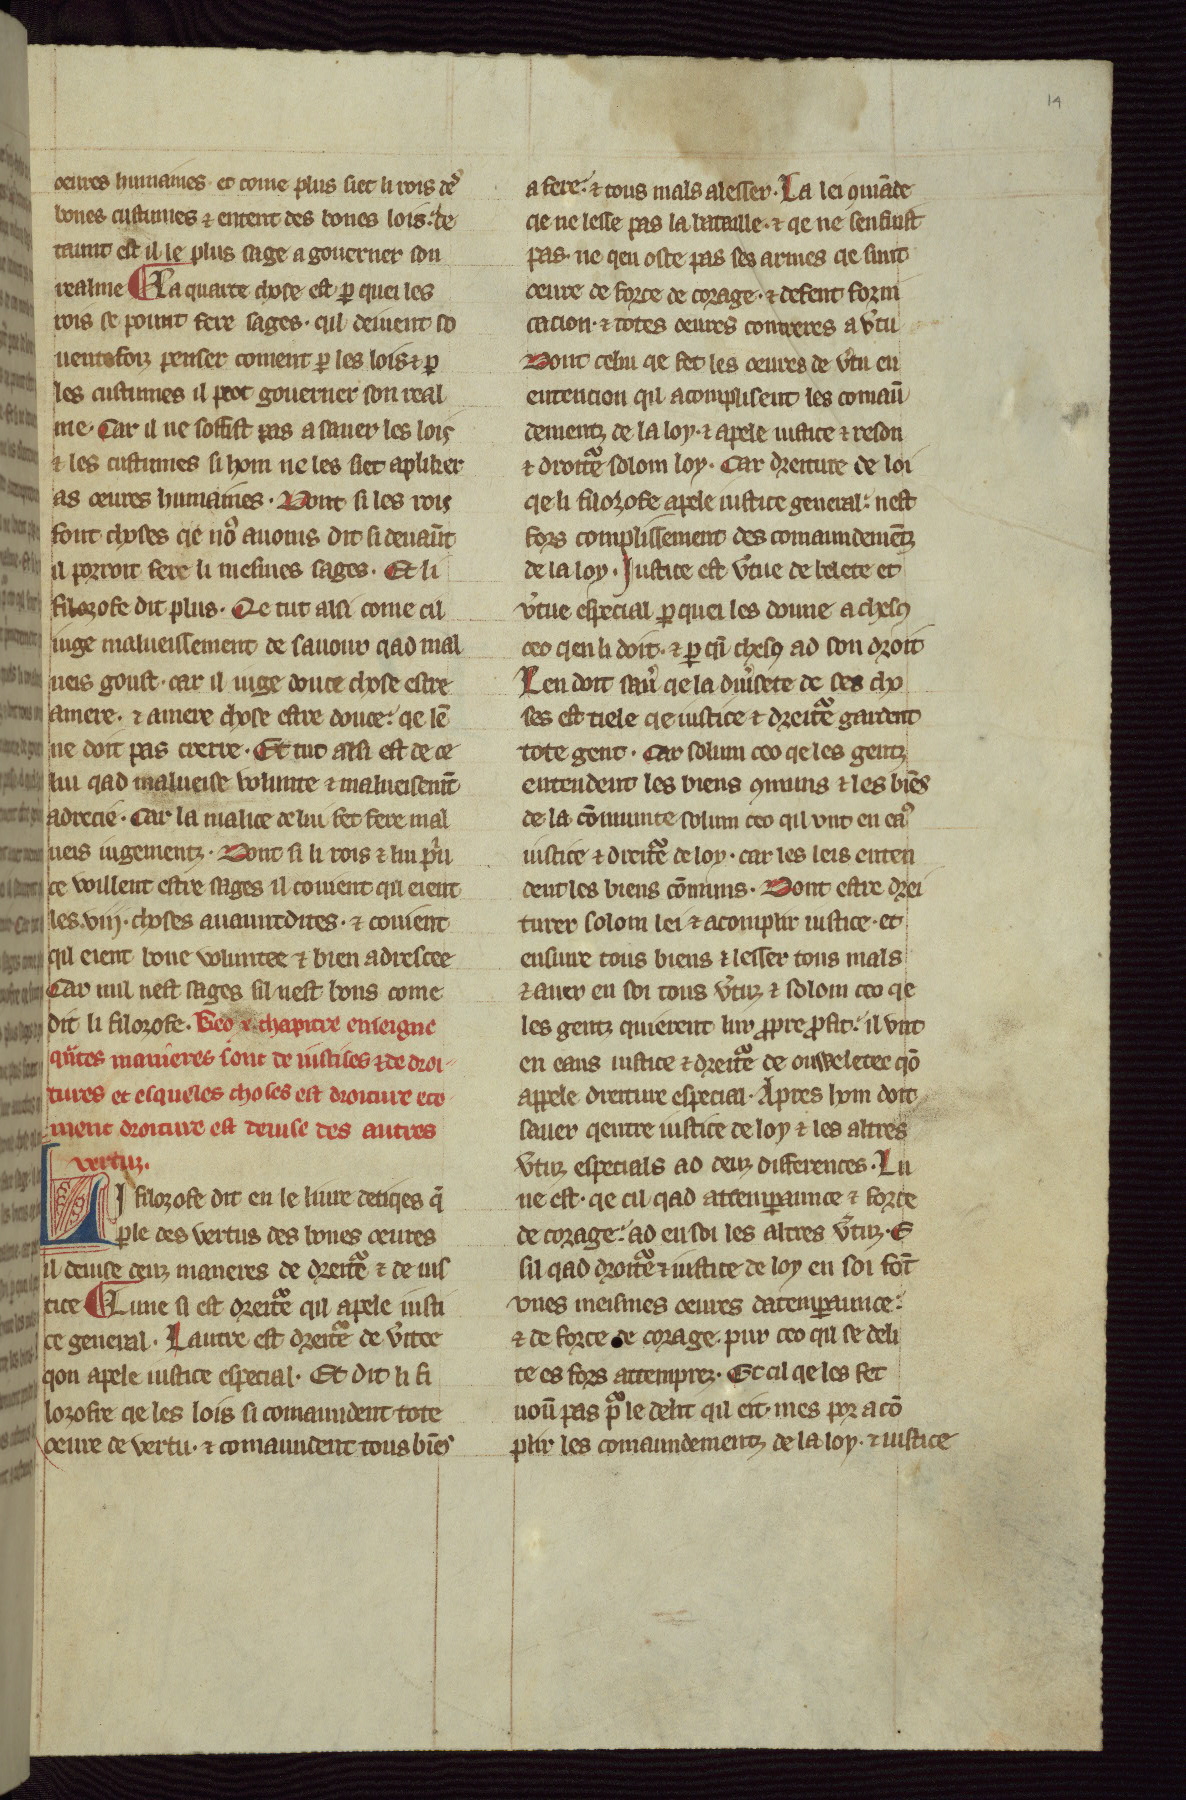 14
oeures humaines· et come plus siet li rois deˢ
bones custumes ⁊ entent des bones lois: de
taunt est il le plus sage a gouerner son
realme La quarte chose est ꝑ quei les
rois se pount fere sages· qil deiuent so
uentefoiz penser coment ꝑ les lois ⁊ ꝑ
les custumes il peot gouerner son real
me· Car il ne soffist pas a sauer les lois
⁊ les custumes si hom ne les siet aplikier
as oeures humaines· Dont si les rois
font choses qe noꝰ auoms dit si deuaūt
il porroit fere li mesmes sages· Et li
filozofe dit plus· Qe tut alsi come cil
iuge malueissement de sauour qad mal
ueis goust· car il iuge douce chose estre
amere· ⁊ amere chose estre douce: qe lē
ne doit pas creere· Et tut alsi est de ce
lui qad malueise volunte ⁊ malueisemt̄
adrecie· Car la malice de lui fet fere mal
ueis iugementz· Dont si li rois ⁊ li pͥn
ce voillent estre sages il couient qil eient
les viij· choses auauntdites· ⁊ couient
qil eient bone voluntee ⁊ bien adrescee
Car nul nest sages sil nest bons come
dit li filozofe· Ceo x· chapitre enseigne
qͣntes manieres sont de iustises ⁊ de droi-
tures et esqueles choses est droiture eco
ment droiture est deuise des autres
vertuz.
LI filozofe dit en le liure detiqes q̄
ꝑle des vertus des bones oeures
il deuise deuz maneres de dreitͣe ⁊ de ius
tice Lune si est dreitͣe qil apele iusti
ce general· Lautre est dreitͣe de v̓itee
qon apele iustice especial· Et dit li fi
lozofre qe les lois si comaundent tote
oeure de vertu· ⁊ comaundent tous biēs
a fere: ⁊ tous mals a lesser· La lei ꝯmāde
qe ne lesse pas la bataille· ⁊ qe ne senfuist
pas· ne qeu oste pas ses armes qe sunt
oeure de force de corage· ⁊ defent forni
cacion· ⁊ totes oeures contreres a v̓tu
Dont celui qe fet les oeures de v̓tu en
entencion qil acomplisent les comaū
dementz de la loy· ⁊ apele iustice ⁊ reson
⁊ droitͣe solom loy· Car dreiture de loi
qe li filozofe apele iustice general: nest
fors complissement des comaundemētz
de la loy· Iustice est v̓tue de lelete et
v̓tue especial ꝑ quei les doune a chesꝯ
ceo qen li doit· ⁊ ꝑ qi chesꝯ ad son droit
Len doit sau̓ qe la diu̓sete de ses cho
ses est tiele qe iustice ⁊ dreitͣe gardent
tote gent· Car solum ceo qe les gentz
entendent les biens ꝯmuns ⁊ les biēs
de la cōmunite solum ceo qil vnt en eaꝰ
iustice ⁊ dreitͣe de loy· car les leis enten
dent les biens cōmuns· Dont estre drei
turer solom lei ⁊ acomplir iustice· et
ensuire tous biens ⁊ lesser tous mals
⁊ auer en soi tous v̓tuz ⁊ solom ceo qe
les gentz quierent lur ꝓpre ꝓfit: il vnt
en eaus iustice ⁊ dreitͣe de ouweletee qō
appele dreiture especial· Apres hom doit
sauer qentre iustice de loy ⁊ les altres
v̓tuz especials ad deuz differences· Lu
ne est· qe cil qad attemꝑaunce ⁊ force
de corage: ad en soi les altres v̓tuz· E
sil qad droitͣe ⁊ iustice de loy en soi fōt
vnes meismes oeures datemꝑaunce:
⁊ de force de corage· pur ceo qil se deli
te es fors attemprez· Et cil qe les fet
noū pas pͣ le delit qil eit· mes por acō
plir les comaundementz de la loy· ⁊ iustice